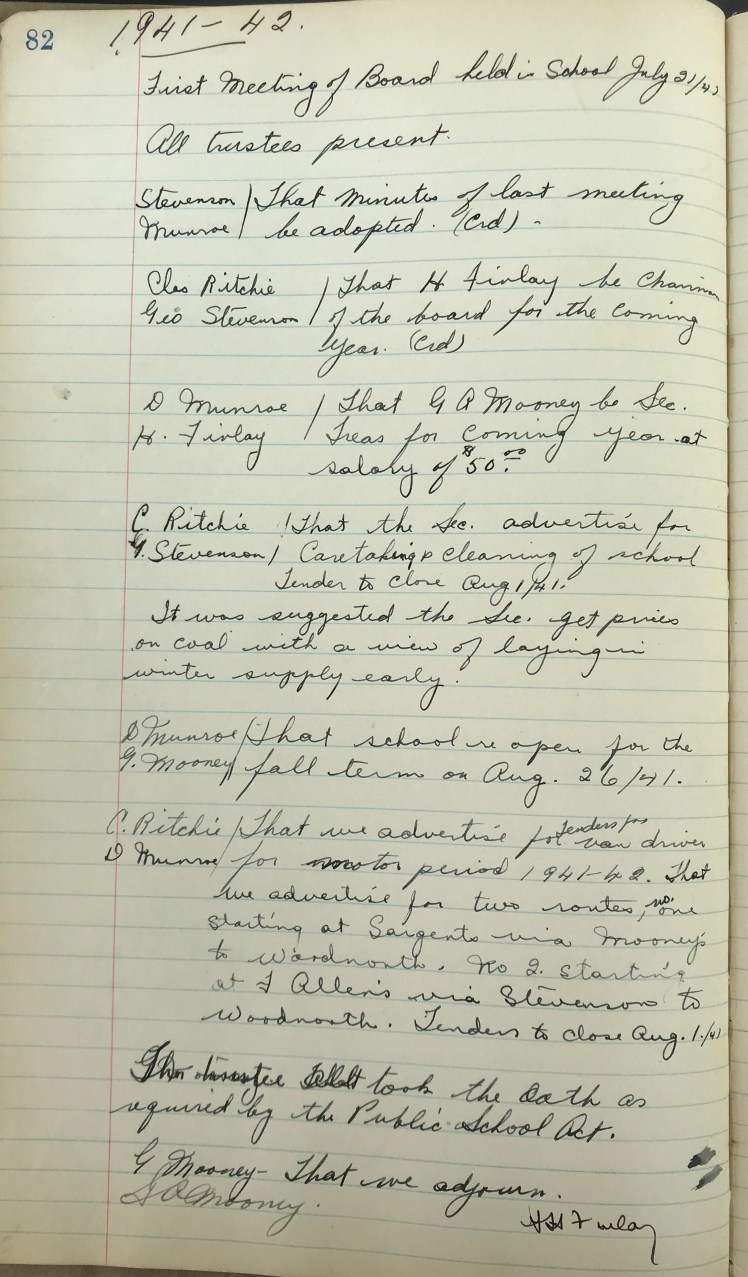 82
1941-42.
First Meeting of Board held in School July 21/41
All trustees present.
Stevenson / That minutes of last meeting
Munroe / be adopted. (Crd) -
Chas Ritchie / That H Finlay be Chairman
Geo Stevenson / of the board for the coming
year. (Crd)
D Munroe / That G A Mooney be Sec.
H. Finlay / Treas for coming year at
salary of $50.00
C. Ritchie / That the Sec. advertise for
G. Stevenson / Caretaking & cleaning of school
Tender to close Aug 1/41.
It was suggested the Sec. get prices
on coal with a view of laying in
winter supply early.
D Munroe / That school re open for the
G. Mooney / fall term on Aug. 26/41.
C. Ritchie / That we advertise for tenders for van driver
D Munroe / for motor period 1941-42. That
we advertise for two routes, no. one
starting at Sargents via Mooney's
to Woodnorth. No 2. starting
at F Allen's via Stevenson to
Woodnorth. Tenders to close Aug. 1./41
trustee took the Oath as
required by the Public School Act.
G Mooney - That we adjourn.
G A Mooney.
H Finlay